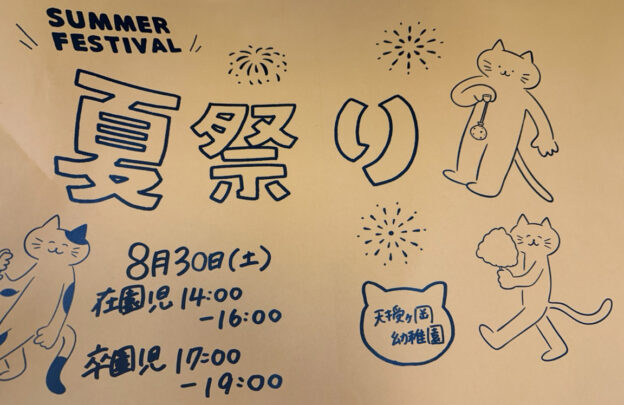 SUMMER
FESTIVAL
夏祭り
8月30日(土)
在園児 14:00
-16:00
卒園児 17:00
-19:00
天授ヶ岡
幼稚園